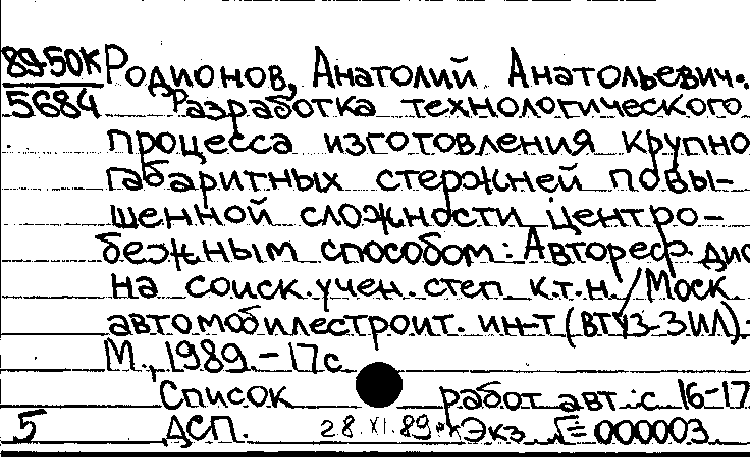 89-50К Родионов, Анатолий Анатольевич.
5684 Разработка технологического
процесса изготовления крупно
габаритных стержней повы-
шенной сложности центро-
бежным способом: Автореф. дис
на соиск. учен. степ. к.т.н./Моск
автомобилестроит. ин-т (ВТУЗ-ЗИЛ).-
М., 1989.-17с.
Список работ авт.: с. 16-17
5 ДСП. 28.XI.89 Экз. № 000003